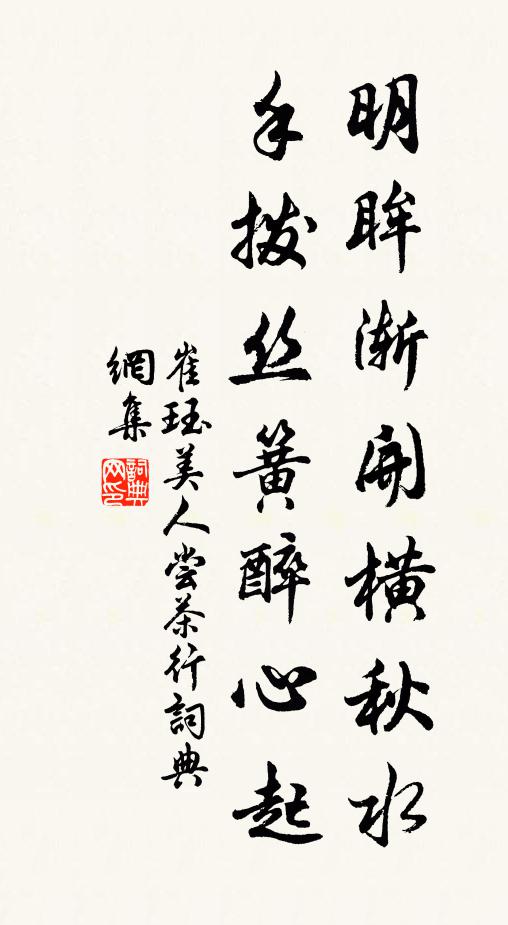 明眸渐開横秋水
手拨丝簧醉心起
崔珏美人尝茶行詞典
網集
詞典
网印